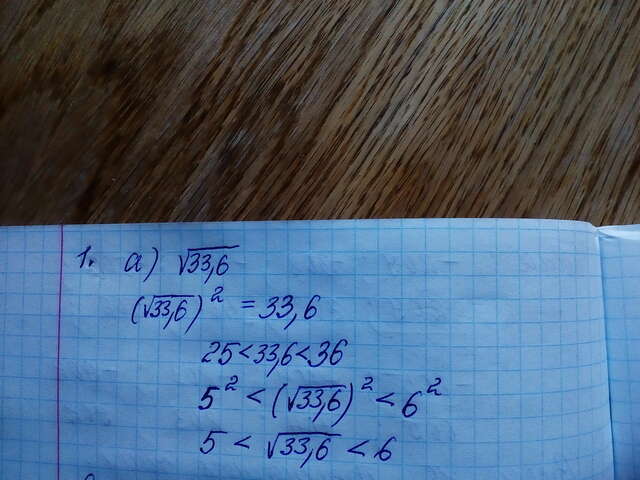 1. а) √33,6
(√33,6)² = 33,6
25<33,6<36
5² < (√33,6)² < 6²
5 < √33,6 < 6